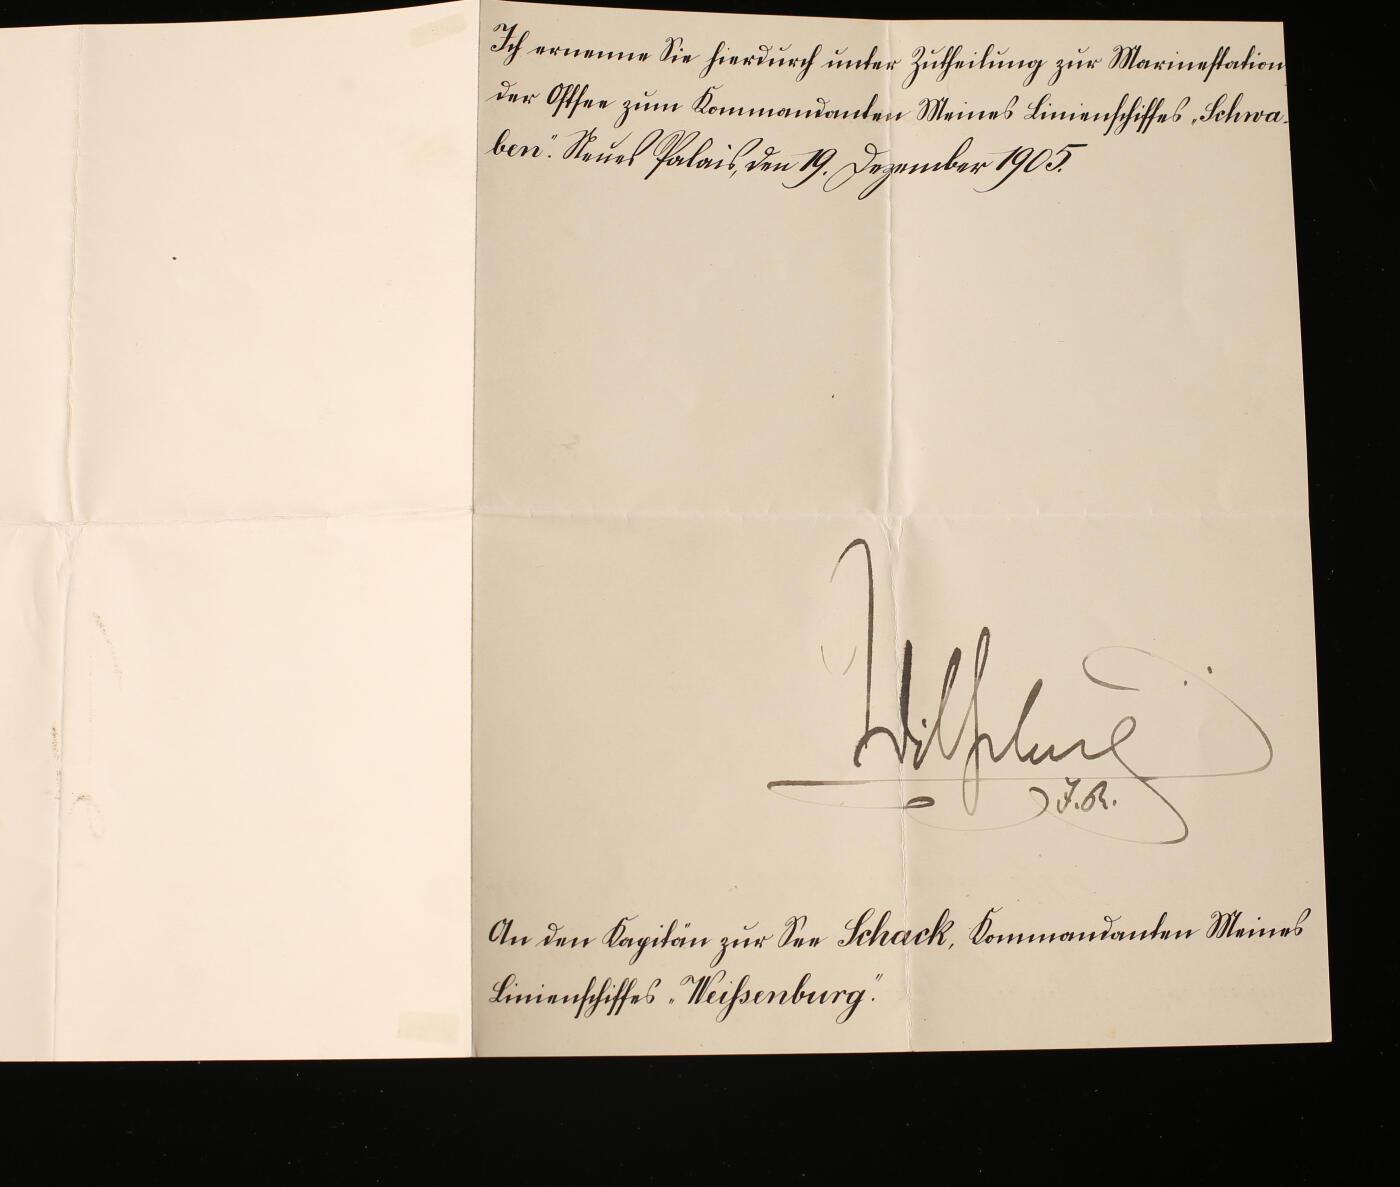 Ich ernenne Sie hierdurch unter Zutheilung zur Marinestation
der Ostsee zum Kommandanten Meines Linienschiffes „Schwa-
ben“. Neues Palais, den 19. Dezember 1905.
Wilhelm
I.R.
An den Kapitän zur See Schack, Kommandanten Meines
Linienschiffes „Weißenburg“.